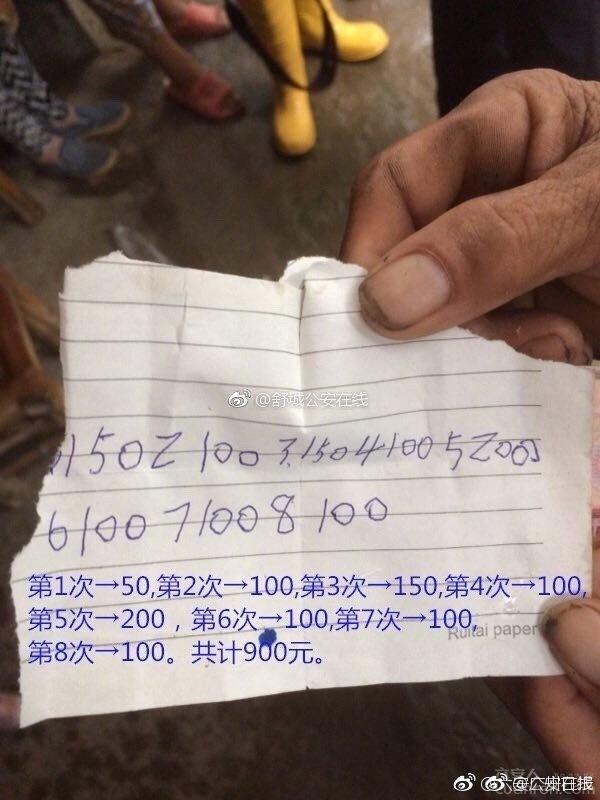 @舒城公安在线
150 2 100 3.150 4 100 5 200
6 100 7 100 8 100
第1次→50,第2次→100,第3次→150,第4次→100,
第5次→200，第6次→100,第7次→100,
第8次→100。共计900元。
Ruitai paper
@广州日报